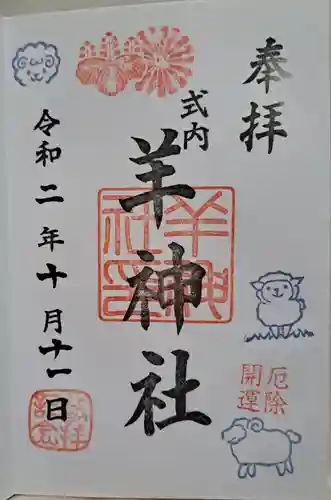 奉拝
式内
羊神社
令和二年十月十一日
厄除
開運
羊神社印